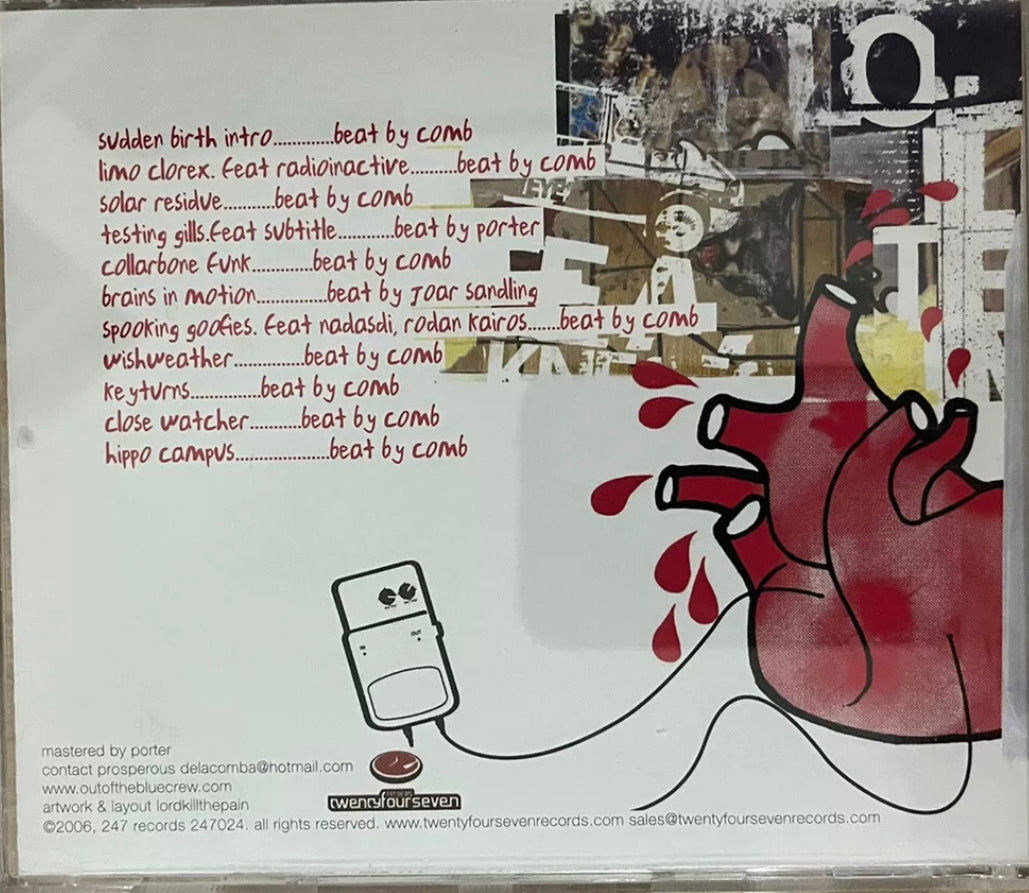 sudden birth intro.............beat by comb
limo clorex. feat radioinactive..........beat by comb
solar residue..........beat by comb
testing gills.feat subtitle............beat by porter
collarbone funk.............beat by comb
brains in motion...............beat by Joar sandling
spooking goofies. feat nadasdi, rodan kairos.......beat by comb
wishweather...............beat by comb
keyturns...............beat by comb
close watcher...........beat by comb
hippo campus....................beat by comb
OUT
IN
mastered by porter
contact prosperous delacomba@hotmail.com
www.outofthebluecrew.com
artwork & layout lordkillthepain
records
twentyfourseven
©2006, 247 records 247024. all rights reserved. www.twentyfoursevenrecords.com sales@twentyfoursevenrecords.com